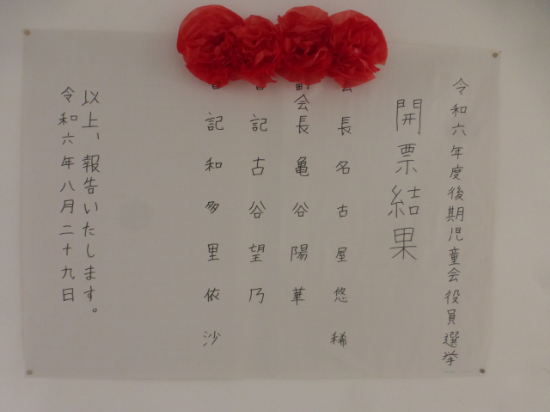 令和六年度後期児童会役員選挙
開票結果
会長名古屋悠稀
副会長亀谷陽華
書記古谷望乃
書記和多里依沙
以上、報告いたします。
令和六年八月二十九日